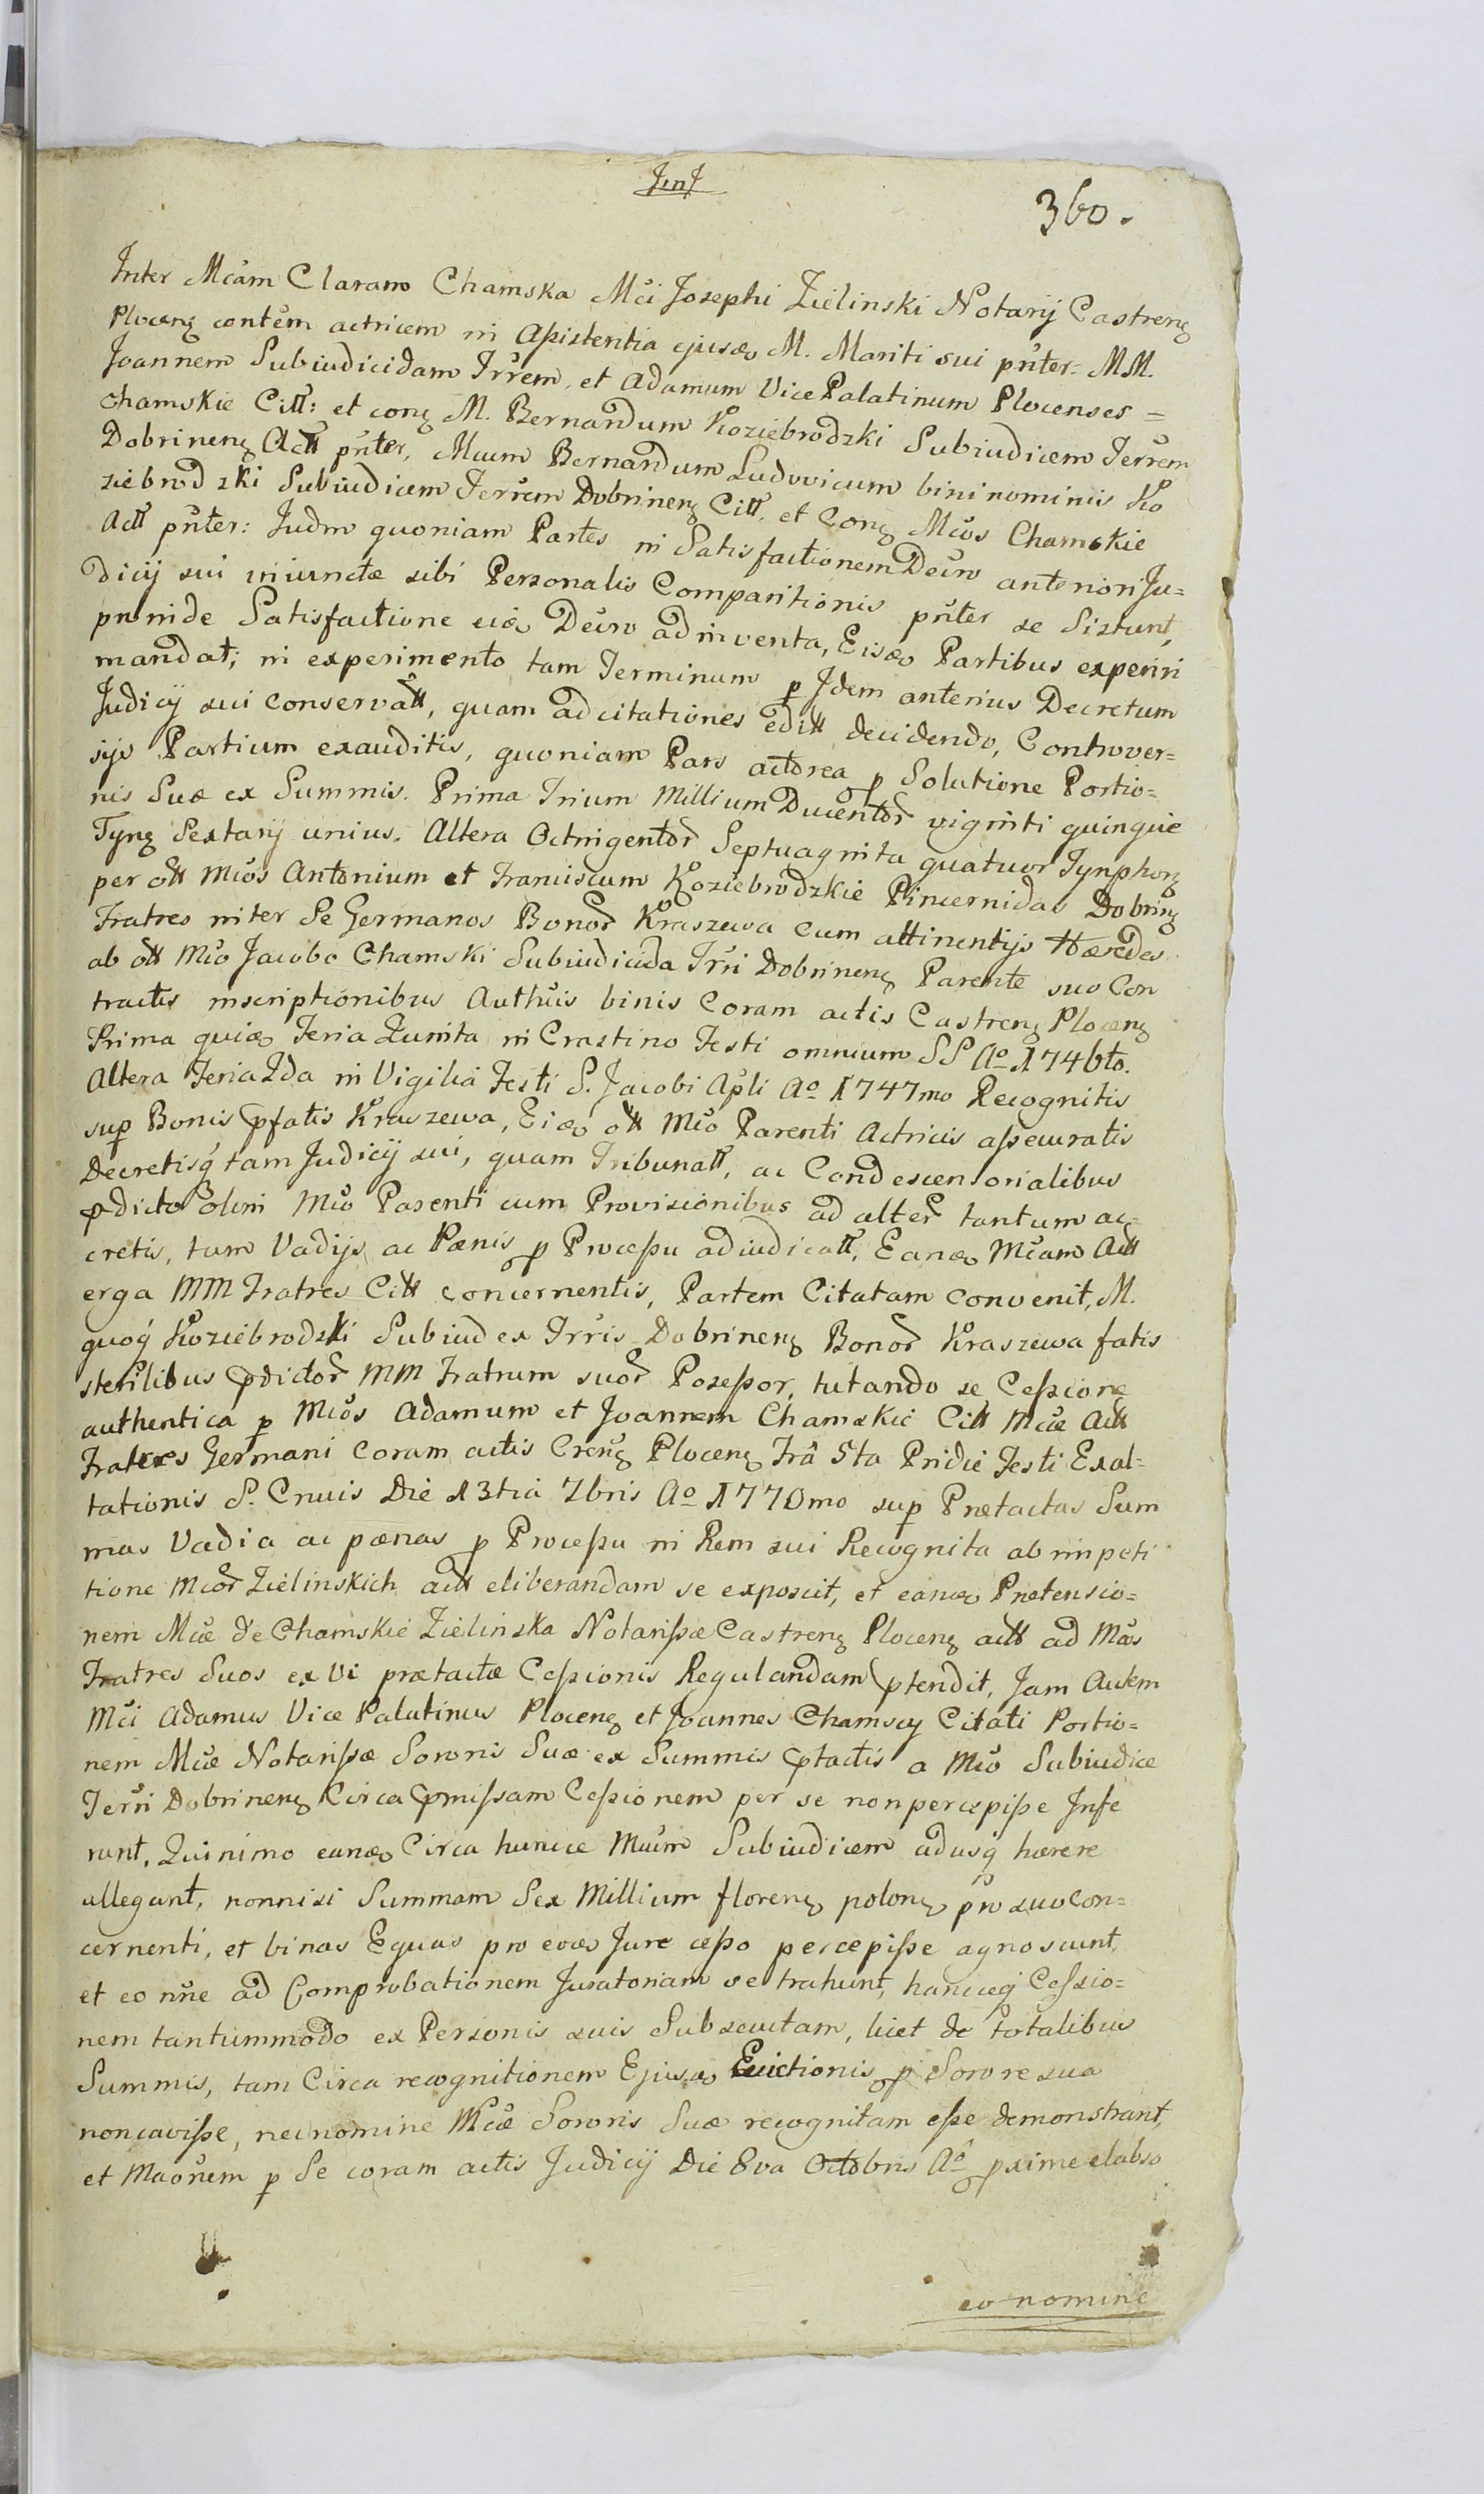 Int
360.
Inter Mcam Claram Chamska Mci Josephi Zielinski Notarij Castreng
Ploceng contem actricem in Assistentia ejusd M. Mariti sui pnter: MM.
Joannem Subiudicidam Trrem, et Adamum Vice Palatinum Plocenses =
Chamskie Citt: et cong M. Bernardum Koziebrodzki Subiudicem Terrem
Dobrineng Actt pnter, Mcum Bernardum Ludovicum bini nominis Ko
ziebrodzki Subiudicem Terrem Dobrineng Citt. et Cong Mcos Chamskie
Actt pnter: Judm quoniam Partes in Satisfactionem Decro anteriori Ju=
dicij sui iniunctæ sibi Personalis Comparitionis pnter se Sistunt,
proinde Satisfactione eid Decro adinventa, Eisd Partibus experiri
mandat; in experimento tam Terminum p Idem anterius Decretum
Judicij sui conservatt, quam ad citationes editt decidendo, Controver=
sijs Partium exauditis, quoniam Pars actorea p Solutione Portio=
nis Suæ ex Summis. Prima Trium Millium Ducentor viginti quinque
Tyng Sextarij unius. Altera Octingentor Septuaginta quatuor Tynphong
per ott Mcos Antonium et Franciscum Koziebrodzkie Pincernidas Dobring
Fratres inter Se Germanos Bonor Kraszewa cum attinentijs Hæredes
ab ott Mco Jacobo Chamski Subiudicida Trri Dobrineng Parente suo Con
tractis inscriptionibus Authcis binis Coram actis Castreng Ploceng
Prima quid Feria Quinta in Crastino Festi omnium SS Ao 1746to.
Altera Feria 2da in Vigilia Festi S. Jacobi Apli Ao 1747mo Recognitis
sup Bonis pfatis Kraszewa, Eid ott Mco Parenti Actricis assecuratis
Decretisq tam Judicij sui, quam Tribunatt, ac Condescensorialibus
pdicto olim Mco Parenti cum Provisionibus ad alter tantum ac=
cretis, tum Vadijs ac Pænis p Processu adiudicatt, Eand Mcam Actt
erga MM Fratres Citt concernentis, Partem Citatam convenit, M.
quoq Koziebrodzki Subiudex Trris Dobrineng Bonor Kraszewa fatis
sterilibus pdictor MM Fratrum suor Possessor, tutando se Cessione
authentica p Mcos Adamum et Joannem Chamskie Citt Mcæ Actt
Fratres Germani coram actis Creng Ploceng Fra 5ta Pridie Festi Exal=
tationis S. Crucis Die 13tia 7bris Ao 1770mo sup Prætactas Sum
mas Vadia ac pænas p Processu in Rem sui Recognita ab impeti
tione Mcor Zielinskich actt eliberandam se exposcit, et eand Prætensio=
nem Mcæ de Chamskie Zielinska Notarissæ Castreng Ploceng actt ad Mcos
Fratres Suos ex Vi prætactæ Cessionis Regulandam ptendit, Jam Autem
Mci Adamus Vice Palatinus Ploceng et Joannes Chamscy Citati Portio=
nem Mcæ Notarissæ Sororis Suæ ex Summis ptactis a Mco Subiudice
Terri Dobrineng Circa pmissam Cessionem per se non percepisse Infe
runt, Quinimo eand Circa huncce Mcum Subiudicem adusq hærere
allegant, nonnisi Summam Sex Millium floreng polong pro suo con=
cernenti, et binas Equas pro eod Jure cesso percepisse agnoscunt,
et eo nne ad Comprobationem Juratoriam se trahunt, hancceq Cessio=
nem tantummodo ex Personis suis Subsecutam, licet de totalibus
Summis, tam Circa recognitionem Ejusd Evictionis p Sorore sua
non cavisse, nec nomine Mcæ Sororis Suæ recognitam esse demonstrant,
et Maonem p Se coram actis Judicij Die 8va Octobris Ao pxime elabso
eo nomine